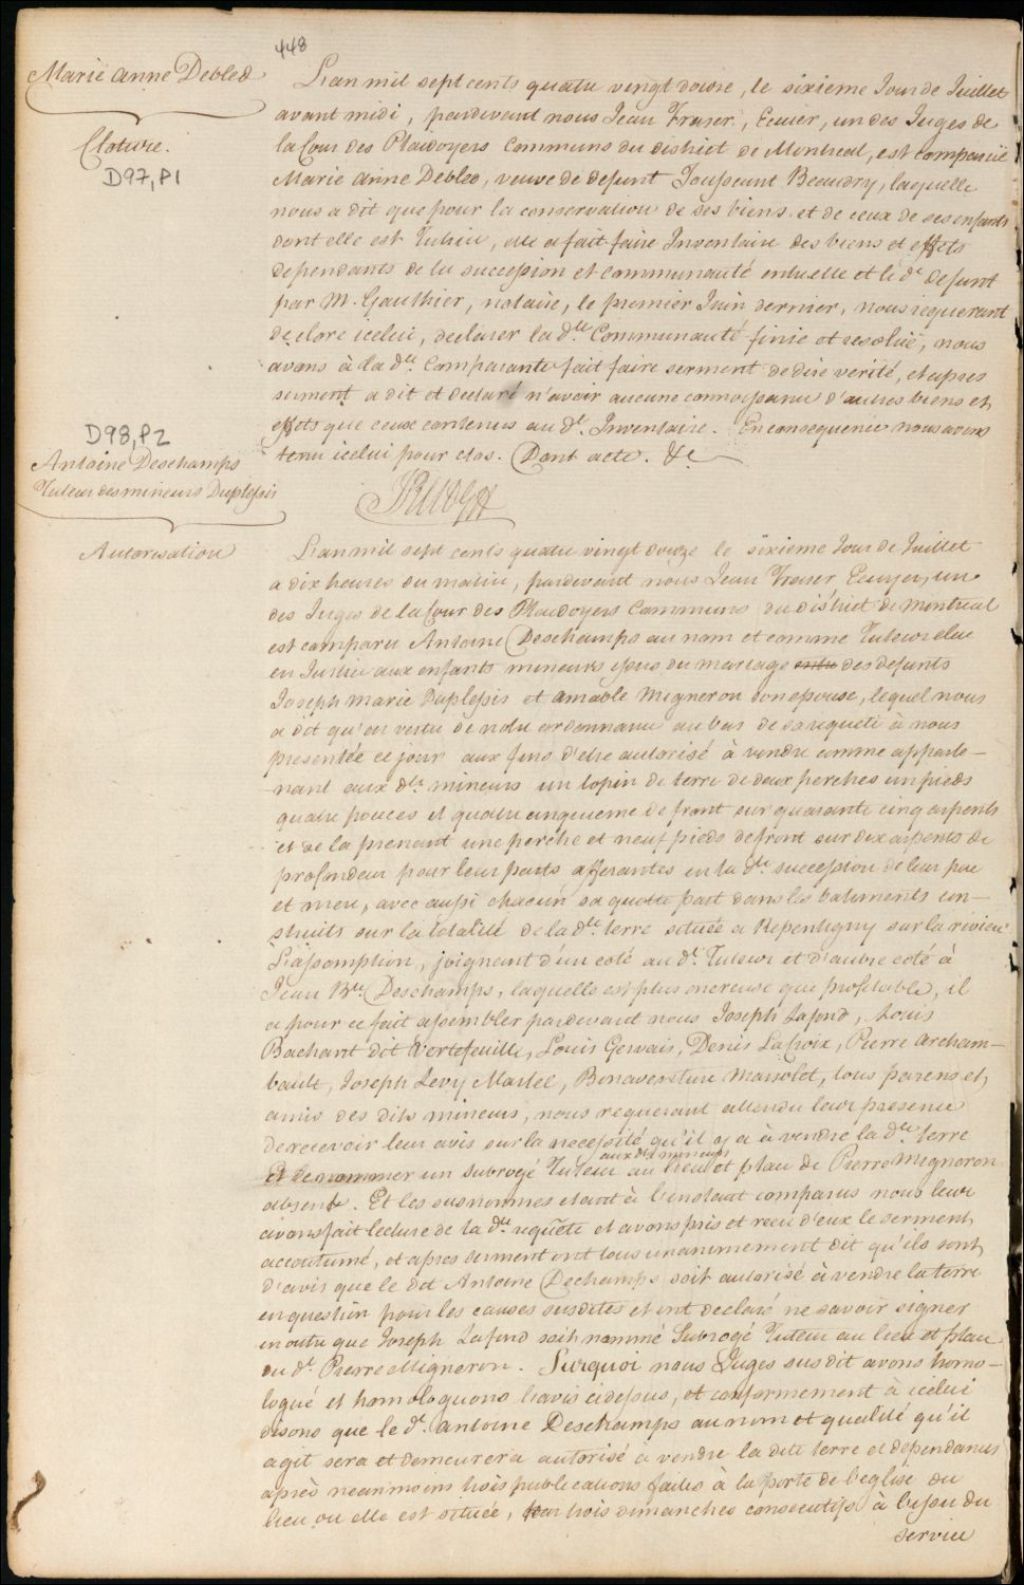 448
Marie anne Debled
Cloture.
D97, P1
L'an mil sept cents quatre vingt douse, le sixieme Jour de Juillet
avant midi, pardevant nous Jean Fraser, Ecuier, un des Juges de
la Cour des Plaidoyers Communs du district de Montreal, est comparuë
Marie Anne Debled, veuve de defunt Toussaint Beaudry, laquelle
nous a dit que pour la conservation de ses biens et de ceux de ses enfants
dont elle est Tutrice, elle a fait faire Inventaire des biens et effets
dependants de la succession et communauté entre elle et le dt. defunt
par M. Gauthier, notaire, le premier Juin dernier, nous requerant
de clore icelui, declarer la dte. Communauté finie et resoluë, nous
avons à la dte. Comparante fait faire serment de dire verité, et apres
serment a dit et declaré n'avoir aucune connoissance d'autres biens et
effets que ceux contenus au dt. Inventaire. En consequence nous avons
tenu icelui pour clos. Dont acte. &c
D98, P2
Antoine Deschamps
Tuteur des mineurs Duplessis
Autorisation
L'an mil sept cents quatre vingt douze le sixieme Jour de Juillet
a dix heures du matin, pardevant nous Jean Fraser Ecuyer, un
des Juges de la Cour des Plaidoyers Communs du district de Montreal
est comparu Antoine Deschamps au nom et comme Tuteur elue
en Justice aux enfants mineurs issus du mariage entre des defunts
Joseph Marie Duplessis et Amable Migneron son epouse, lequel nous
a dit qu'en vertu de notre ordonnance au bas de sa requete à nous
presentée ce jour aux fins d'etre autorisé à vendre comme apparte-
nant aux dts. mineurs un lopin de terre de deux perches un pieds
quatre pouces et quatre cinquieme de front sur quarante cinq arpents
et de la prenant une perche et neuf pieds de front sur dix arpents de
profondeur pour leur parts afferantes en la dte. succession de leur pere
et mere, avec aussi chacun sa quotte part dans les batiments con-
struits sur la totalité de la dte. terre située a Repentigny sur la riviere
L'assomption, joignant d'un coté au dt. Tuteur et d'autre coté à
Jean Bte. Deschamps, laquelle est plus onereuse que profitable, il
a pour ce fait assembler pardevant nous Joseph Lafond, Louis
Bachant dit Vertefeuille, Louis Gervais, Denis LaCroix, Pierre Archam-
bault, Joseph Levy Martel, Bonaventure Marsolet, tous parens et
amis des dits mineurs, nous requerant attendu leur presence
de recevoir leur avis sur la necessité qu'il y a à vendre la dte. terre
aux dts mineurs
et de nommer un subrogé Tuteur au lieu et place de Pierre Migneron
absent. Et les susnommes etant à l'instant comparus nous leur
avons fait lecture de la dte. requête et avons pris et recu d'eux le serment
accoutumé, et apres serment ont tous unanimement dit qu'ils sont
d'avis que le dit Antoine Dechamps soit autorisé à vendre la terre
en question pour les causes susdites et ont declaré ne savoir signer
en outre que Joseph Lafond soit nommé Subrogé Tuteur au lieu et place
du dt. Pierre Migneron. Surquoi nous Juges susdit avons homo-
logué et homologuons l'avis cidessus, et conformement à icelui
disons que le dt. Antoine Deschamps au nom et qualité qu'il
agit sera et demeurera autorisé à vendre la dite terre et dependances
après neanmoins trois publications faites à la porte de l'eglise du
lieu ou elle est située, par trois dimanches consecutifs à l'issu du
service